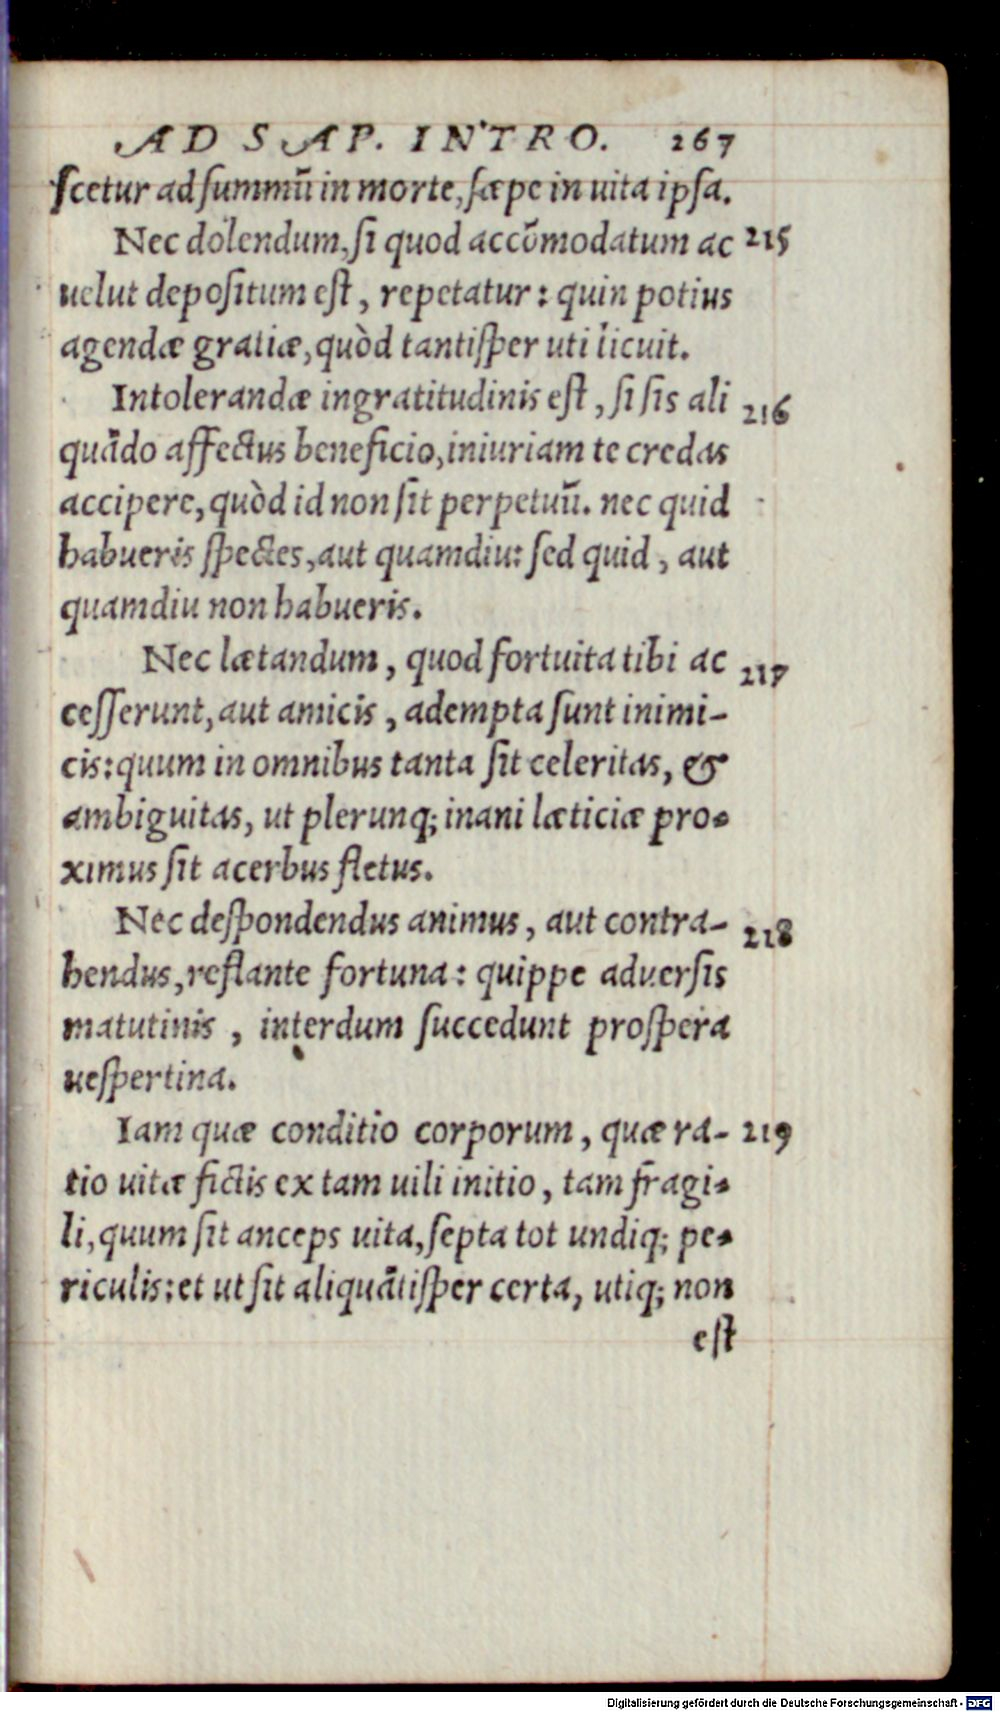 AD SAP. INTRO. 267
scetur ad summũ in morte, sæpe in uita ipsa.
Nec dolendum, si quod accõmodatum ac 215
uelut depositum est, repetatur: quin potius
agendæ gratiæ, quòd tantisper uti licuit.
Intolerandæ ingratitudinis est, si sis ali 216
quãdo affectus beneficio, iniuriam te credas
accipere, quòd id non sit perpetuũ. nec quid
habueris spectes, aut quamdiu: sed quid, aut
quamdiu non habueris.
Nec lætandum, quod fortuita tibi ac 217
cesserunt, aut amicis, adempta sunt inimi-
cis: quum in omnibus tanta sit celeritas, &
ambiguitas, ut plerunq; inani læticiæ pro-
ximus sit acerbus fletus.
Nec despondendus animus, aut contra- 218
hendus, reflante fortuna: quippe aduersis
matutinis, interdum succedunt prospera
uespertina.
Iam quæ conditio corporum, quæ ra- 219
tio uitæ fictis ex tam uili initio, tam fragi-
li, quum sit anceps uita, septa tot undiq; pe-
riculis: et ut sit aliquãtisper certa, utiq; non
est
Digitalisierung gefördert durch die Deutsche Forschungsgemeinschaft - DFG